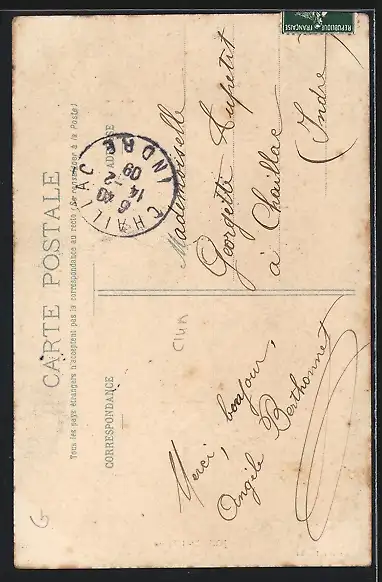 CARTE POSTALE
Tous les pays étrangers n'acceptent pas la correspondance au recto (Se renseigner à la Poste)
CORRESPONDANCE
ADRESSE
CHAILLAC
6 40
14 -2
09
INDRE
REPUBLIQUE FRANÇAISE
Merci, bonjour,
Angèle Berthonnet
Mademoiselle
Georgette Aupetit
à Chaillac
(Indre)